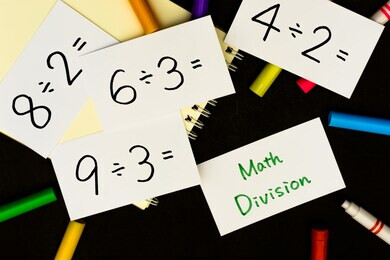 8÷2=
6÷3=
4÷2=
9÷3=
Math
Division